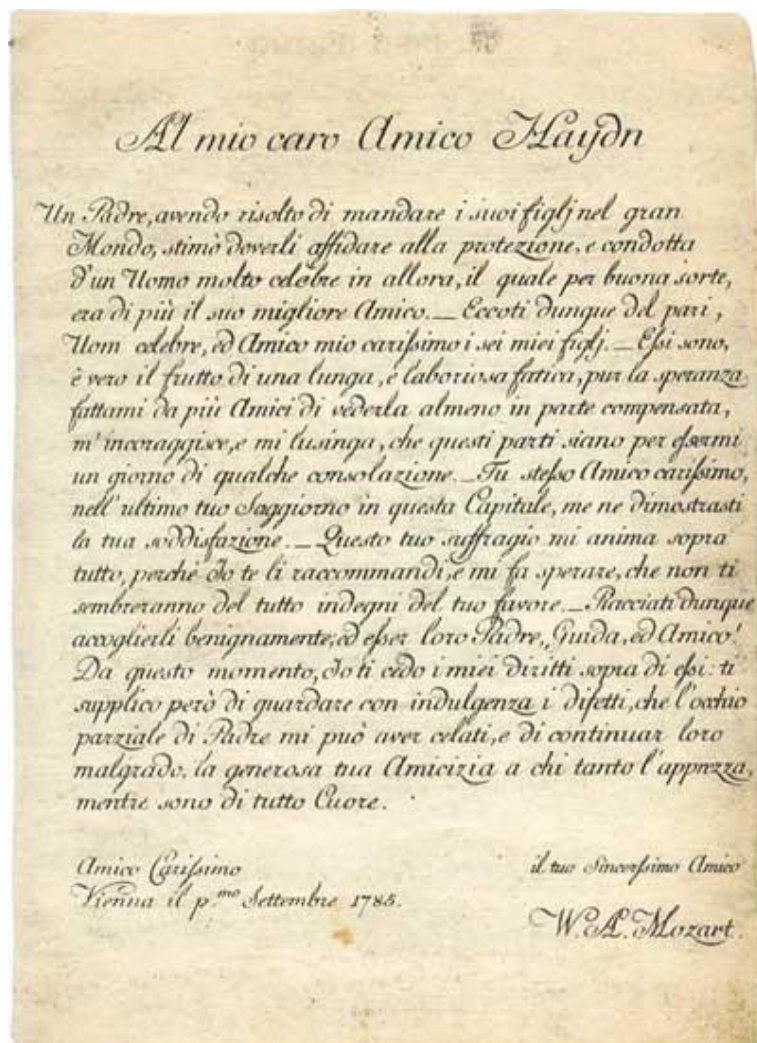 Al mio caro Amico Haydn
Un Padre, avendo risolto di mandare i suoi figlj nel gran
Mondo, stimò doverli affidare alla protezione, e condotta
d'un Uomo molto celebre in allora, il quale per buona sorte,
era di più il suo migliore Amico. _ Eccoti dunque del pari,
Uom celebre, ed Amico mio carissimo i sei miei figlj. _ Essi sono,
è vero il frutto di una lunga, e laboriosa fatica, pur la speranza
fattami da più Amici di vederla almeno in parte compensata,
m'incoraggisce, e mi lusinga, che questi parti siano per essermi
un giorno di qualche consolazione. _ Tu stesso Amico carissimo,
nell'ultimo tuo Soggiorno in questa Capitale, me ne dimostrasti
la tua soddisfazione. _ Questo tuo suffragio mi anima sopra
tutto, perchè Io te li raccommandi, e mi fa sperare, che non ti
sembreranno del tutto indegni del tuo favore. _ Piacciati dunque
accoglierli benignamente; ed esser loro Padre, Guida, ed Amico!
Da questo momento, Io ti cedo i miei diritti sopra di essi: ti
supplico però di guardare con indulgenza i difetti, che l'occhio
parziale di Padre mi può aver celati, e di continuar loro
malgrado, la generosa tua Amicizia a chi tanto l'apprezza,
mentre sono di tutto Cuore.
Amico Carissimo
il tuo Sincerissimo Amico
Vienna il p.mo Settembre 1785.
W. A. Mozart.